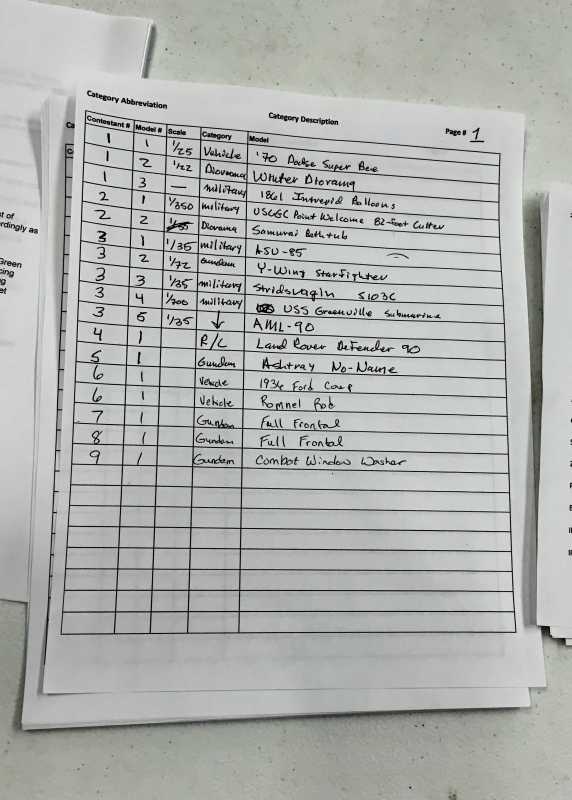 Category Abbreviation
Category Description
Page # 1
Contestant # Model # Scale Category Model
1 1 1/25 Vehicle '70 Dodge Super Bee
1 2 1/22 Diorama Winter Diorama
1 3 — military 1861 Intrepid Balloons
2 1 1/350 military USCGC Point Welcome 82-Foot Cutter
2 2 Diorama Samurai Bathtub
3 1 1/35 military ASU-85
3 2 1/72 Gundam Y-Wing Starfighter
3 3 1/35 military Stridsvagn S103C
3 4 1/700 military USS Greenville Submarine
3 5 1/35 ↓ AML-90
4 1 R/C Land Rover Defender 90
5 1 Gundam Ashtray No-Name
6 1 Vehicle 1934 Ford Coup
6 1 Vehicle Rommel Rod
7 1 Gundam Full Frontal
8 1 Gundam Full Frontal
9 1 Gundam Combat Window Washer
t of
rdingly as
Green
cing
ng
et